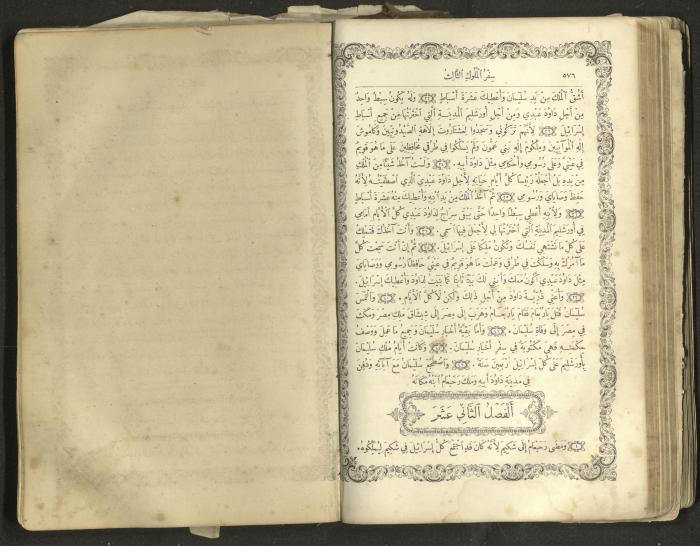 ٥٧٦ سِفْرُ ٱلْمُلُوكِ ٱلثَّالِثُ
أَشُقُّ ٱلْمُلْكَ مِنْ يَدِ سُلَيْمَانَ وَأُعْطِيكَ عَشَرَةَ أَسْبَاطٍ وَلَهُ يَكُونُ سِبْطٌ وَاحِدٌ
مِنْ أَجْلِ دَاوُدَ عَبْدِي وَمِنْ أَجْلِ أُورَشَلِيمَ ٱلْمَدِينَةِ ٱلَّتِي ٱخْتَرْتُهَا مِنْ جَمِيعِ أَسْبَاطِ
إِسْرَائِيلَ لِأَنَّهُمْ تَرَكُونِي وَسَجَدُوا لِعَشْتَارُوتَ إِلَاهَةِ ٱلصَّيْدُونِيِّينَ وَكَامُوشَ
إِلٰهِ ٱلْمُوآبِيِّينَ وَمِلْكُومَ إِلٰهِ بَنِي عَمُّونَ وَلَمْ يَسْلُكُوا فِي طُرُقِي مُحَافِظِينَ عَلَى مَا هُوَ قَوِيمٌ
فِي عَيْنَيَّ وَعَلَى رُسُومِي وَأَحْكَامِي مِثْلَ دَاوُدَ أَبِيهِ. وَلَسْتُ آخُذُ شَيْئًا مِنَ ٱلْمُلْكِ
مِنْ يَدِهِ بَلْ أَجْعَلُهُ رَئِيسًا كُلَّ أَيَّامِ حَيَاتِهِ لِأَجْلِ دَاوُدَ عَبْدِي ٱلَّذِي ٱصْطَفَيْتُهُ لِأَنَّهُ
حَفِظَ وَصَايَايَ وَرُسُومِي ثُمَّ آخُذُ ٱلْمُلْكَ مِنْ يَدِ ٱبْنِهِ وَأُعْطِيكَ مِنْهُ عَشَرَةَ أَسْبَاطٍ
وَلِٱبْنِهِ أُعْطِي سِبْطًا وَاحِدًا حَتَّى يَبْقَى سِرَاجٌ لِدَاوُدَ عَبْدِي كُلَّ ٱلْأَيَّامِ أَمَامِي
فِي أُورَشَلِيمَ ٱلْمَدِينَةِ ٱلَّتِي ٱخْتَرْتُهَا لِي لِأَجْعَلَ فِيهَا ٱسْمِي. وَأَنْتَ آخُذُكَ فَتَمْلِكُ
عَلَى كُلِّ مَا تَشْتَهِي نَفْسُكَ وَتَكُونُ مَلِكًا عَلَى إِسْرَائِيلَ. ثُمَّ إِنْ أَنْتَ سَمِعْتَ كُلَّ
مَا آمُرُكَ بِهِ وَسَلَكْتَ فِي طُرُقِي وَعَمِلْتَ مَا هُوَ قَوِيمٌ فِي عَيْنَيَّ حَافِظًا رُسُومِي وَوَصَايَايَ
مِثْلَ دَاوُدَ عَبْدِي أَكُونُ مَعَكَ وَأَبْنِي لَكَ بَيْتًا ثَابِتًا كَمَا بَنَيْتُ لِدَاوُدَ وَأُعْطِيكَ إِسْرَائِيلَ.
وَأُعَنِّي ذُرِّيَّةَ دَاوُدَ مِنْ أَجْلِ ذٰلِكَ وَلٰكِنْ لَا كُلَّ ٱلْأَيَّامِ. وَٱلْتَمَسَ
سُلَيْمَانُ قَتْلَ يَارُبْعَامَ فَقَامَ يَارُبْعَامُ وَهَرَبَ إِلَى مِصْرَ إِلَى شِيشَاقَ مَلِكِ مِصْرَ وَمَكَثَ
فِي مِصْرَ إِلَى وَفَاةِ سُلَيْمَانَ. وَأَمَّا بَقِيَّةُ أَخْبَارِ سُلَيْمَانَ وَجَمِيعُ مَا عَمِلَ وَوَصْفُ
حِكْمَتِهِ فَهِيَ مَكْتُوبَةٌ فِي سِفْرِ أَخْبَارِ سُلَيْمَانَ. وَكَانَتْ أَيَّامُ مُلْكِ سُلَيْمَانَ
بِأُورَشَلِيمَ عَلَى كُلِّ إِسْرَائِيلَ أَرْبَعِينَ سَنَةً. وَٱضْطَجَعَ سُلَيْمَانُ مَعَ آبَائِهِ وَدُفِنَ
فِي مَدِينَةِ دَاوُدَ أَبِيهِ وَمَلَكَ رَحَبْعَامُ ٱبْنُهُ مَكَانَهُ
أَلْفَصْلُ ٱلثَّانِي عَشَرَ
وَمَضَى رَحَبْعَامُ إِلَى شَكِيمَ لِأَنَّهُ كَانَ قَدِ ٱجْتَمَعَ كُلُّ إِسْرَائِيلَ فِي شَكِيمَ لِيُمَلِّكُوهُ.